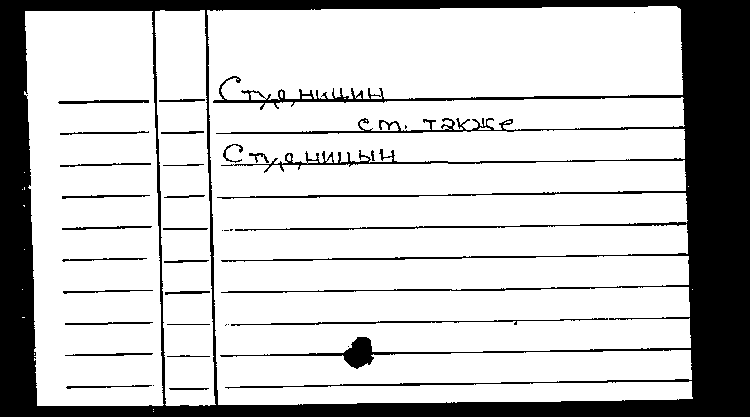 Студницин
ст. также
Студницын